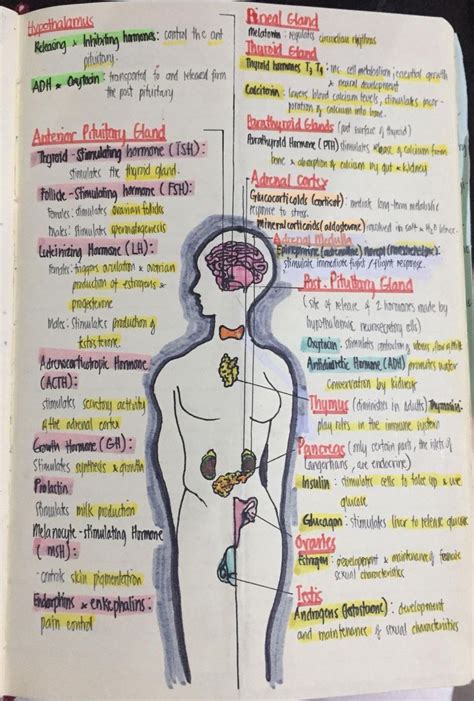 Hypothalamus
Releasing & Inhibiting hormones: control the ant
pituitary
ADH & Oxytocin: transported to and released form
the post pituitary
Anterior Pituitary Gland
Thyroid-Stimulating hormone (TSH):
stimulates the thyroid gland.
Follicle-Stimulating hormone (FSH):
Females: stimulates ovarian follicles
Males: stimulates spermatogenesis
Luteinizing Hormone (LH):
Females: triggers ovulation & ovarian
production of estrogens &
progesterone
Males: Stimulates production of
testosterone
Adrenocorticotropic Hormone
(ACTH):
stimulates secretory activity
of the adrenal cortex
Growth Hormone (GH):
Stimulates synthesis & growth
Prolactin
Stimulates milk production
Melanocyte-stimulating Hormone
(MSH):
-controls skin pigmentation
Endorphins & enkephalins:
pain control
Pineal Gland
Melatonin: regulates circadian rhythms
Thyroid Gland
Thyroid hormones T3 T4: inc. cell metabolism, essential growth
& neural development
Calcitonin: lowers blood calcium levels, stimulates incor-
poration of calcium into bone.
Parathyroid Glands (post surface of thyroid)
Parathyroid Hormone (PTH) stimulates release of calcium from
bone & absorption of calcium by gut & kidney
Adrenal Cortex
Glucocorticoids (cortisol): mediate long-term metabolic
response to stress.
Mineralcorticoids (aldosterone): involved in salt & H2O
Adrenal Medulla
Epinephrine (adrenaline)
stimulate immediate fight/flight response.
Post. Pituitary Gland
(site of release of 2 hormones made by
hypothalamic neurosecretory cells)
Oxytocin: stimulates contraction of uterus, flow of milk
Antidiuretic Hormone (ADH) promotes water
conservation by kidneys
Thymus (diminishes in adults) Thymosin:
play roles in the immune system
Pancreas (only certain parts, the islets of
Langerhans, are endocrine)
Insulin: stimulates cells to take up & use
glucose
Glucagon: stimulates liver to release glucose
Ovaries
Estrogen: development & maintenance of female
sexual characteristics
Testis
Androgens (testosterone): development
and maintenance of sexual characteristics